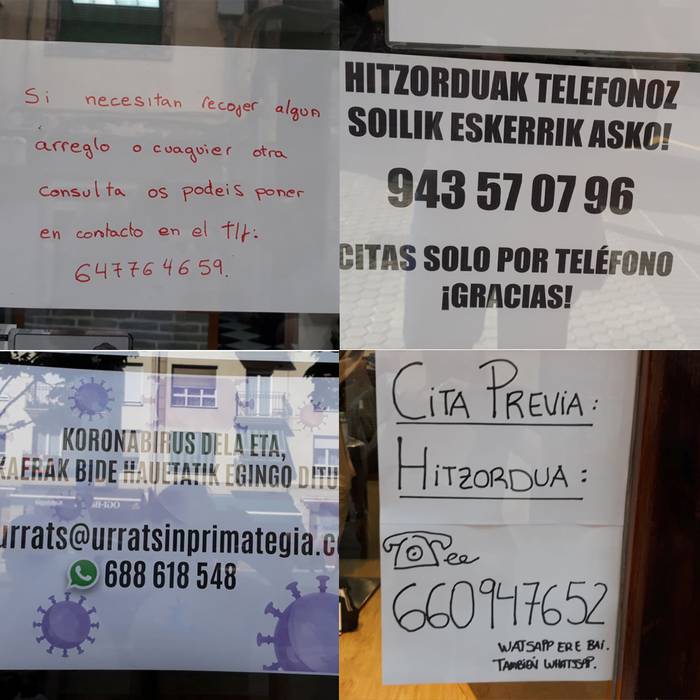 Si necesitan recojer algun
arreglo o cuaquier otra
consulta os podeis poner
en contacto en el tlf:
647764659.
HITZORDUAK TELEFONOZ
SOILIK ESKERRIK ASKO!
943 57 07 96
CITAS SOLO POR TELÉFONO
¡GRACIAS!
KORONABIRUS DELA ETA,
KAERAK BIDE HAUETATIK EGINGO DITU
urrats@urratsinprimategia.c
688 618 548
CITA PREVIA:
HITZORDUA:
660947652
WATSAPP ERE BAI.
TAMBIÉN WHATSAP.